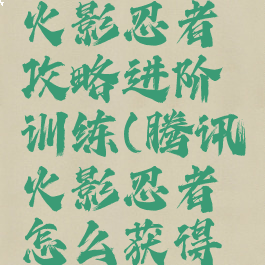 火影忍者
攻略进阶
训练(腾讯
火影忍者
怎么获得